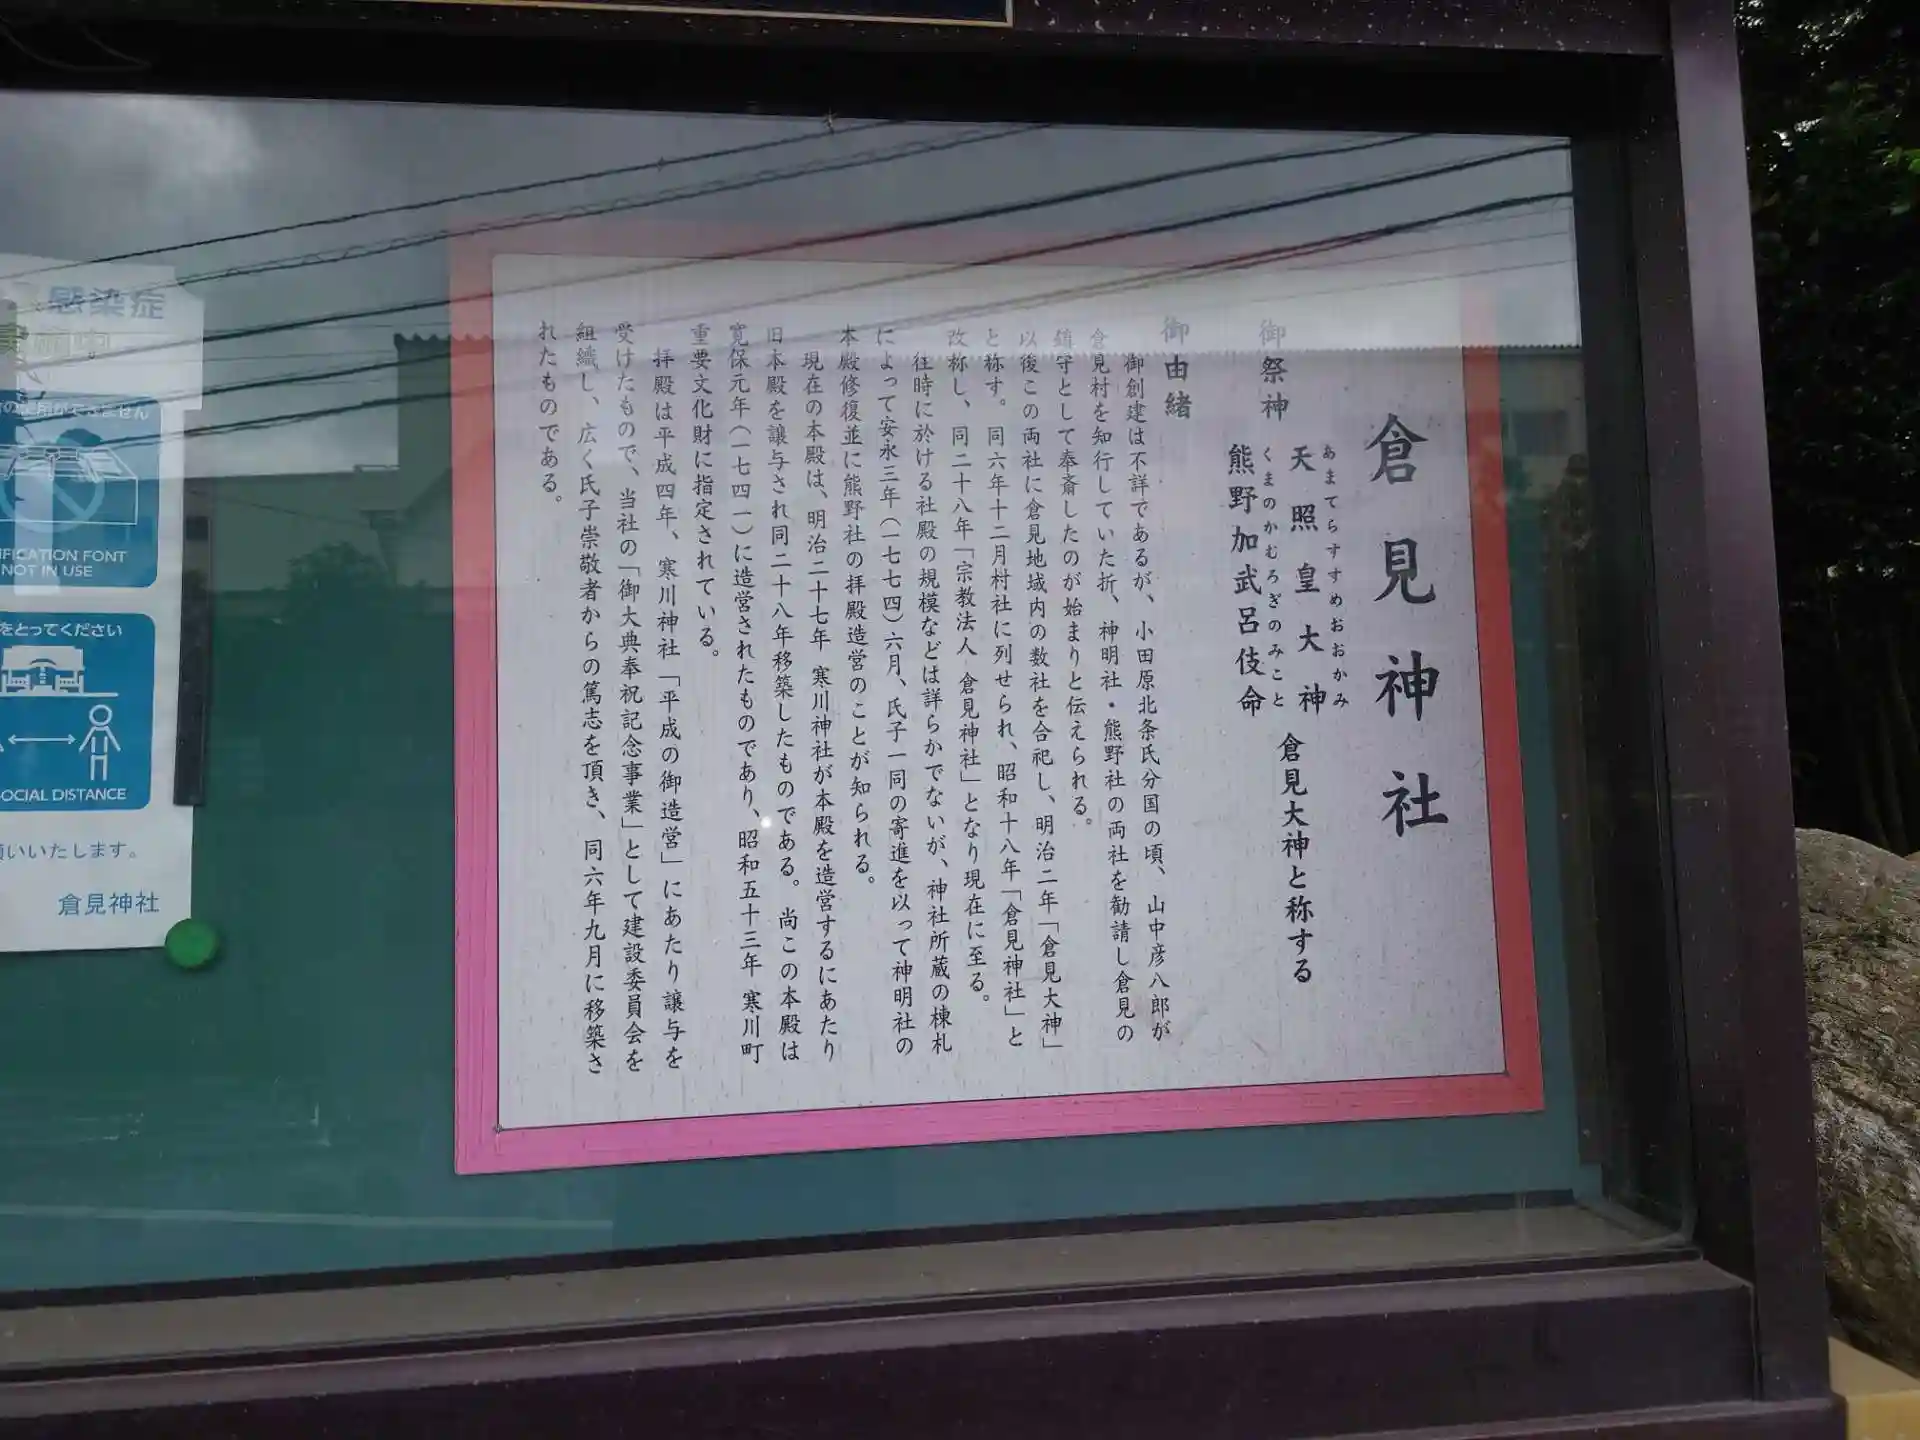 倉見神社
御祭神
あまてらすすめおおかみ
天照皇大神
くまのかむろぎのみこと
熊野加武呂伎命
倉見大神と称する
御由緒
御創建は不詳であるが、小田原北条氏分国の頃、山中彦八郎が
倉見村を知行していた折、神明社・熊野社の両社を勧請し倉見の
鎮守として奉斎したのが始まりと伝えられる。
以後この両社に倉見地域内の数社を合祀し、明治二年「倉見大神」
と称す。同六年十二月村社に列せられ、昭和十八年「倉見神社」と
改称し、同二十八年「宗教法人 倉見神社」となり現在に至る。
往時に於ける社殿の規模などは詳らかでないが、神社所蔵の棟札
によって安永三年(一七七四)六月、氏子一同の寄進を以って神明社の
本殿修復並に熊野社の拝殿造営のことが知られる。
現在の本殿は、明治二十七年 寒川神社が本殿を造営するにあたり
旧本殿を譲与され同二十八年移築したものである。尚この本殿は
寛保元年(一七四一)に造営されたものであり、昭和五十三年 寒川町
重要文化財に指定されている。
拝殿は平成四年、寒川神社「平成の御造営」にあたり譲与を
受けたもので、当社の「御大典奉祝記念事業」として建設委員会を
組織し、広く氏子崇敬者からの篤志を頂き、同六年九月に移築さ
れたものである。
感染症
実施中
できません
IFICATION FONT
NOT IN USE
をとってください
SOCIAL DISTANCE
願いいたします。
倉見神社